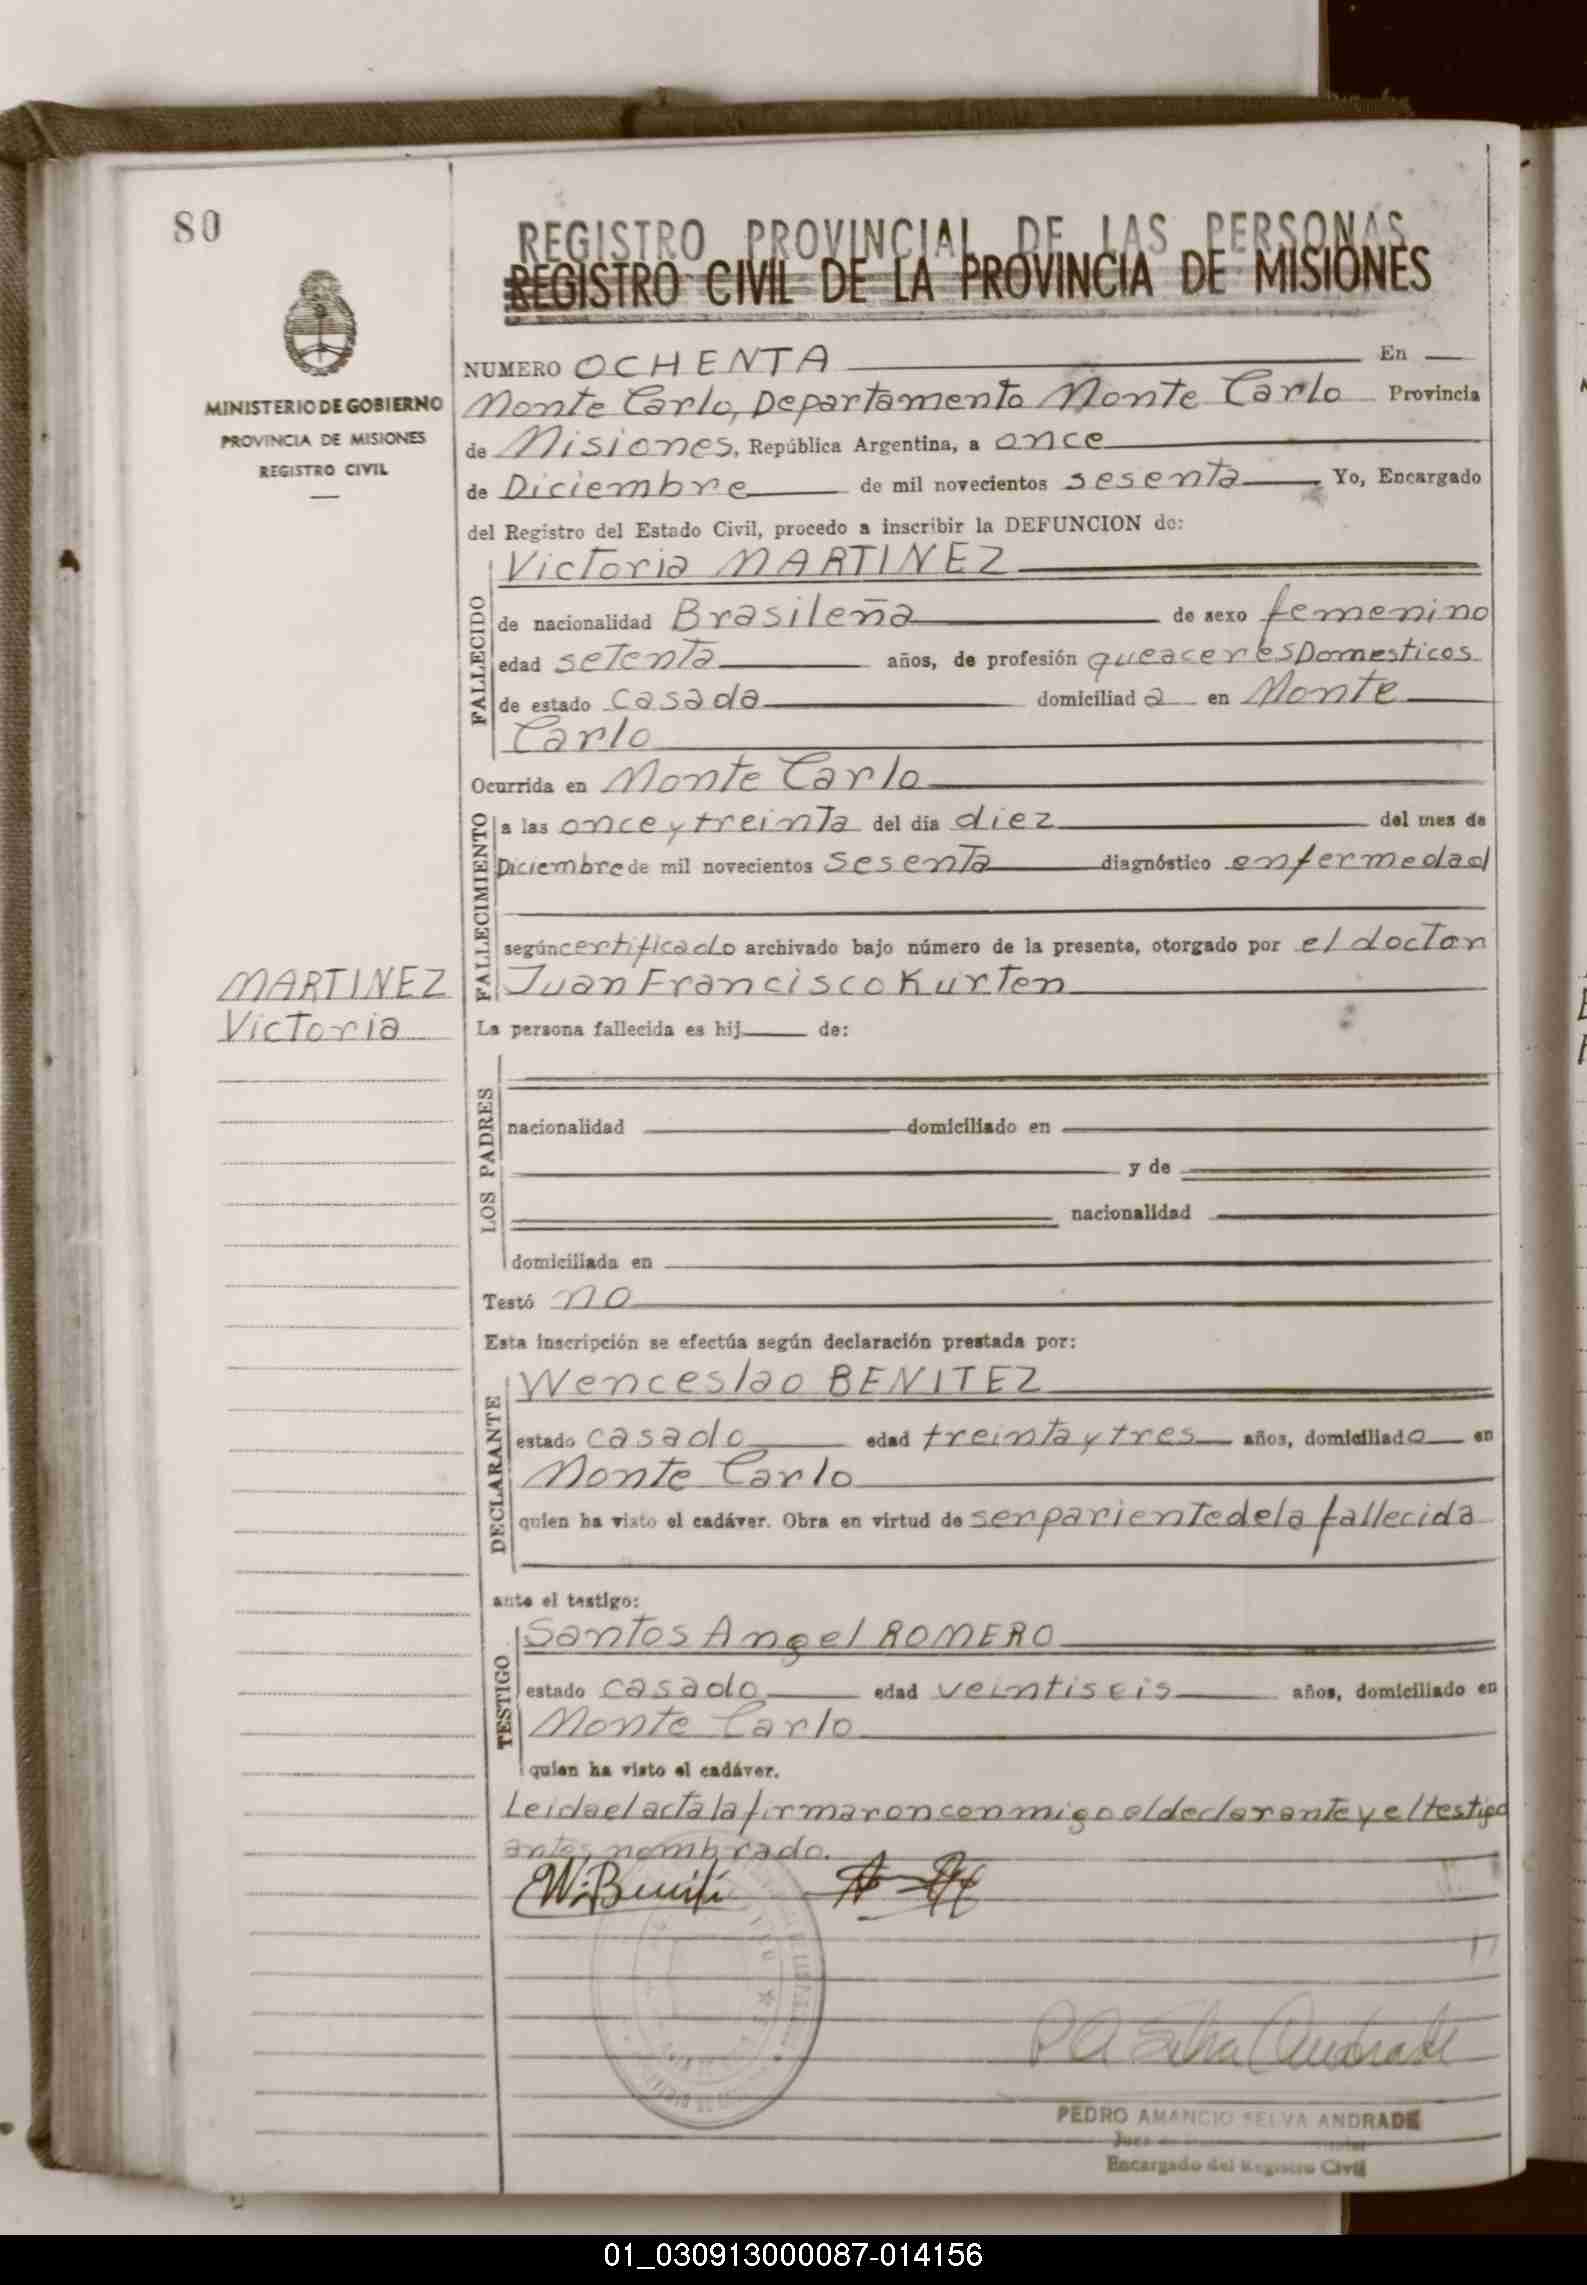 80
REGISTRO PROVINCIAL DE LAS PERSONAS
REGISTRO CIVIL DE LA PROVINCIA DE MISIONES
MINISTERIO DE GOBIERNO
PROVINCIA DE MISIONES
REGISTRO CIVIL
NUMERO OCHENTA En
Monte Carlo, Departamento Monte Carlo Provincia
de Misiones, República Argentina, a once
de Diciembre de mil novecientos sesenta Yo, Encargado
del Registro del Estado Civil, procedo a inscribir la DEFUNCION de:
FALLECIDO
Victoria MARTINEZ
de nacionalidad Brasileña de sexo femenino
edad setenta años, de profesión queaceres Domesticos
de estado casada domiciliad a en Monte
Carlo
Ocurrida en Monte Carlo
FALLECIMIENTO
a las once y treinta del día diez del mes de
Diciembre de mil novecientos sesenta diagnóstico enfermedad
según certificado archivado bajo número de la presente, otorgado por el doctor
Juan Francisco Kurten
MARTINEZ
Victoria
La persona fallecida es hij de:
LOS PADRES
nacionalidad domiciliado en
y de
nacionalidad
domiciliada en
Testó no
Esta inscripción se efectúa según declaración prestada por:
DECLARANTE
Wenceslao BENITEZ
estado casado edad treinta y tres años, domiciliado en
Monte Carlo
quien ha visto el cadáver. Obra en virtud de ser pariente de la fallecida
ante el testigo:
TESTIGO
Santos Angel ROMERO
estado casado edad veintiseis años, domiciliado en
Monte Carlo
quien ha visto el cadáver.
Leida el acta la firmaron conmigo el declarante y el testigo
antes nombrado.
W. Benitez
P A Selva Andrade
PEDRO AMANCIO SELVA ANDRADE
Encargado del Registro Civil
01_030913000087-014156